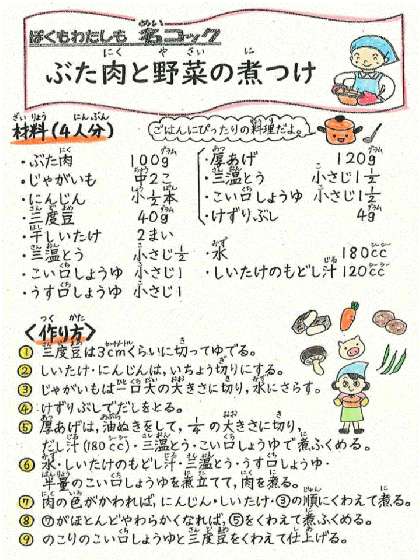 ぼくもわたしも 名コック
ぶた肉と野菜の煮つけ
材料(4人分)
ごはんにぴったりの料理だよ。
・ぶた肉 100g
・じゃがいも 中2こ
・にんじん 小1/2本
・三度豆 40g
・干しいたけ 2まい
・三温とう 小さじ1/2
・こい口しょうゆ 小さじ1
・うす口しょうゆ 小さじ1
・厚あげ 120g
・三温とう 小さじ1 1/2
・こい口しょうゆ 小さじ1 1/2
・けずりぶし 4g
・水 180cc
・しいたけのもどし汁 120cc
〈作り方〉
① 三度豆は3cmくらいに切ってゆでる。
② しいたけ・にんじんは、いちょう切りにする。
③ じゃがいもは一口大の大きさに切り、水にさらす。
④ けずりぶしでだしをとる。
⑤ 厚あげは、油ぬきをして、1/4の大きさに切り、
だし汁(180cc)・三温とう・こい口しょうゆで煮ふくめる。
⑥ 水・しいたけのもどし汁・三温とう・うす口しょうゆ・
半量のこい口しょうゆを煮立てて、肉を煮る。
⑦ 肉の色がかわれば、にんじん・しいたけ・③の順にくわえて煮る。
⑧ ⑦がほとんどやわらかくなれば、⑤をくわえて煮ふくめる。
⑨ のこりのこい口しょうゆと三度豆をくわえて仕上げる。